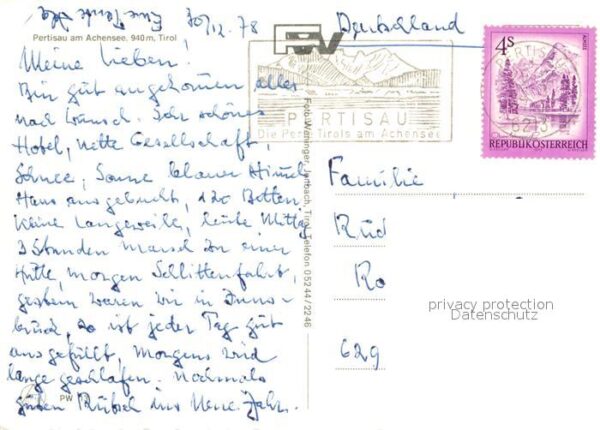 30/12.78
Deutschland
Pertisau am Achensee, 940 m, Tirol
Meine Lieben!
Bin gut angekommen, alles
nach Wunsch. Sehr schönes
Hotel, nette Gesellschaft,
Schnee, Sonne blauer Himmel
Haus ausgebucht, 120 Betten
keine Langeweile, heute Mittag
3 Stunden Marsch zu einer
Hütte, morgen Schlittenfahrt,
gestern waren wir in Inns-
bruck, so ist jeder Tag gut
ausgefüllt, Morgens wird
lange geschlafen. Nochmals
guten Rutsch ins Neue Jahr.
PW
Jenbach, Tirol, Telefon 05244/2246
PERTISAU
Die Perle Tirols am Achensee
PERTISAU
6213
4S
REPUBLIK ÖSTERREICH
Familie
Rüd
Ro
629
privacy protection
Datenschutz